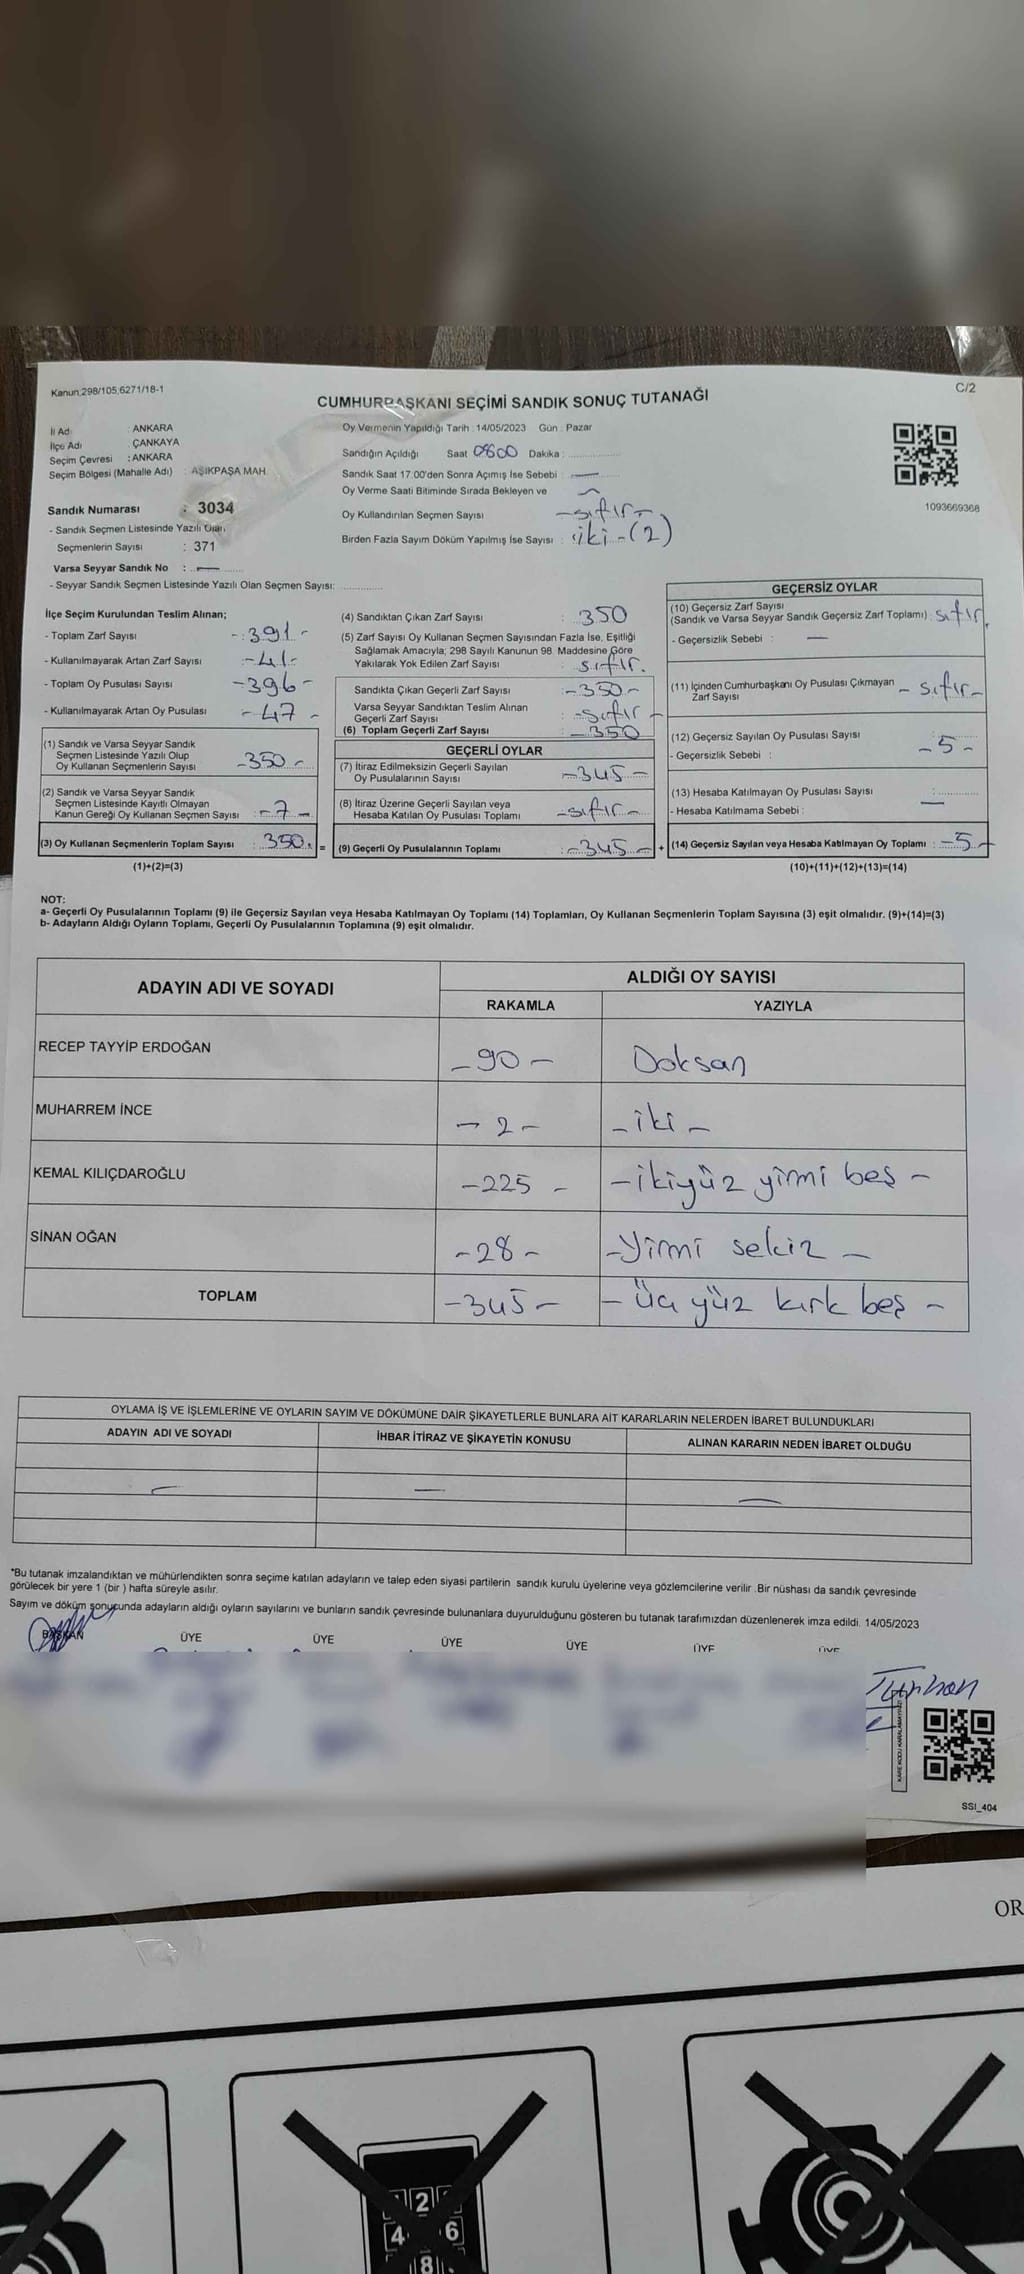 Kanun;298/105;6271/18-1
C/2
CUMHURBAŞKANI SEÇİMİ SANDIK SONUÇ TUTANAĞI
İl Adı : ANKARA
İlçe Adı : ÇANKAYA
Seçim Çevresi : ANKARA
Seçim Bölgesi (Mahalle Adı) : AŞIKPAŞA MAH.
Sandık Numarası : 3034
- Sandık Seçmen Listesinde Yazılı Olan
Seçmenlerin Sayısı : 371
Varsa Seyyar Sandık No :
- Seyyar Sandık Seçmen Listesinde Yazılı Olan Seçmen Sayısı:
Oy Vermenin Yapıldığı Tarih : 14/05/2023 Gün : Pazar
Sandığın Açıldığı Saat 0800 Dakika :
Sandık Saat 17.00'den Sonra Açımış İse Sebebi :
Oy Verme Saati Bitiminde Sırada Bekleyen ve
Oy Kullandırılan Seçmen Sayısı - sıfır -
Birden Fazla Sayım Döküm Yapılmış İse Sayısı : iki - (2)
1093669368
İlçe Seçim Kurulundan Teslim Alınan;
- Toplam Zarf Sayısı - 391 -
- Kullanılmayarak Artan Zarf Sayısı - 41 -
- Toplam Oy Pusulası Sayısı - 396 -
- Kullanılmayarak Artan Oy Pusulası - 47 -
(1) Sandık ve Varsa Seyyar Sandık
Seçmen Listesinde Yazılı Olup
Oy Kullanan Seçmenlerin Sayısı - 350 -
(2) Sandık ve Varsa Seyyar Sandık
Seçmen Listesinde Kayıtlı Olmayan
Kanun Gereği Oy Kullanan Seçmen Sayısı : - 7 -
(3) Oy Kullanan Seçmenlerin Toplam Sayısı : 350. =
(1)+(2)=(3)
(4) Sandıktan Çıkan Zarf Sayısı : 350
(5) Zarf Sayısı Oy Kullanan Seçmen Sayısından Fazla İse, Eşitliği
Sağlamak Amacıyla; 298 Sayılı Kanunun 98. Maddesine Göre
Yakılarak Yok Edilen Zarf Sayısı : sıfır.
Sandıkta Çıkan Geçerli Zarf Sayısı : - 350 -
Varsa Seyyar Sandıktan Teslim Alınan
Geçerli Zarf Sayısı : - sıfır -
(6) Toplam Geçerli Zarf Sayısı : - 350
GEÇERLİ OYLAR
(7) İtiraz Edilmeksizin Geçerli Sayılan
Oy Pusulalarının Sayısı : - 345 -
(8) İtiraz Üzerine Geçerli Sayılan veya
Hesaba Katılan Oy Pusulası Toplamı - sıfır -
(9) Geçerli Oy Pusulalarının Toplamı : - 345 - +
GEÇERSİZ OYLAR
(10) Geçersiz Zarf Sayısı
(Sandık ve Varsa Seyyar Sandık Geçersiz Zarf Toplamı) : sıfır.
- Geçersizlik Sebebi : —
(11) İçinden Cumhurbaşkanı Oy Pusulası Çıkmayan
Zarf Sayısı - sıfır -
(12) Geçersiz Sayılan Oy Pusulası Sayısı - 5 -
- Geçersizlik Sebebi :
(13) Hesaba Katılmayan Oy Pusulası Sayısı : —
- Hesaba Katılmama Sebebi :
(14) Geçersiz Sayılan veya Hesaba Katılmayan Oy Toplamı : - 5 -
(10)+(11)+(12)+(13)=(14)
NOT:
a- Geçerli Oy Pusulalarının Toplamı (9) ile Geçersiz Sayılan veya Hesaba Katılmayan Oy Toplamı (14) Toplamları, Oy Kullanan Seçmenlerin Toplam Sayısına (3) eşit olmalıdır. (9)+(14)=(3)
b- Adayların Aldığı Oyların Toplamı, Geçerli Oy Pusulalarının Toplamına (9) eşit olmalıdır.
ADAYIN ADI VE SOYADI
ALDIĞI OY SAYISI
RAKAMLA YAZIYLA
RECEP TAYYİP ERDOĞAN - 90 - Doksan
MUHARREM İNCE - 2 - - iki -
KEMAL KILIÇDAROĞLU - 225 - - ikiyüz yirmi beş -
SİNAN OĞAN - 28 - - Yirmi sekiz -
TOPLAM - 345 - - Üç yüz kırk beş -
OYLAMA İŞ VE İŞLEMLERİNE VE OYLARIN SAYIM VE DÖKÜMÜNE DAİR ŞİKAYETLERLE BUNLARA AİT KARARLARIN NELERDEN İBARET BULUNDUKLARI
ADAYIN ADI VE SOYADI İHBAR İTİRAZ VE ŞİKAYETİN KONUSU ALINAN KARARIN NEDEN İBARET OLDUĞU
*Bu tutanak imzalandıktan ve mühürlendikten sonra seçime katılan adayların ve talep eden siyasi partilerin sandık kurulu üyelerine veya gözlemcilerine verilir .Bir nüshası da sandık çevresinde
görülecek bir yere 1 (bir ) hafta süreyle asılır.
Sayım ve döküm sonucunda adayların aldığı oyların sayılarını ve bunların sandık çevresinde bulunanlara duyurulduğunu gösteren bu tutanak tarafımızdan düzenlenerek imza edildi. 14/05/2023
BAŞKAN ÜYE ÜYE ÜYE ÜYE ÜYE ÜYE
Turhan
SSI_404
OR
2
4 6
8